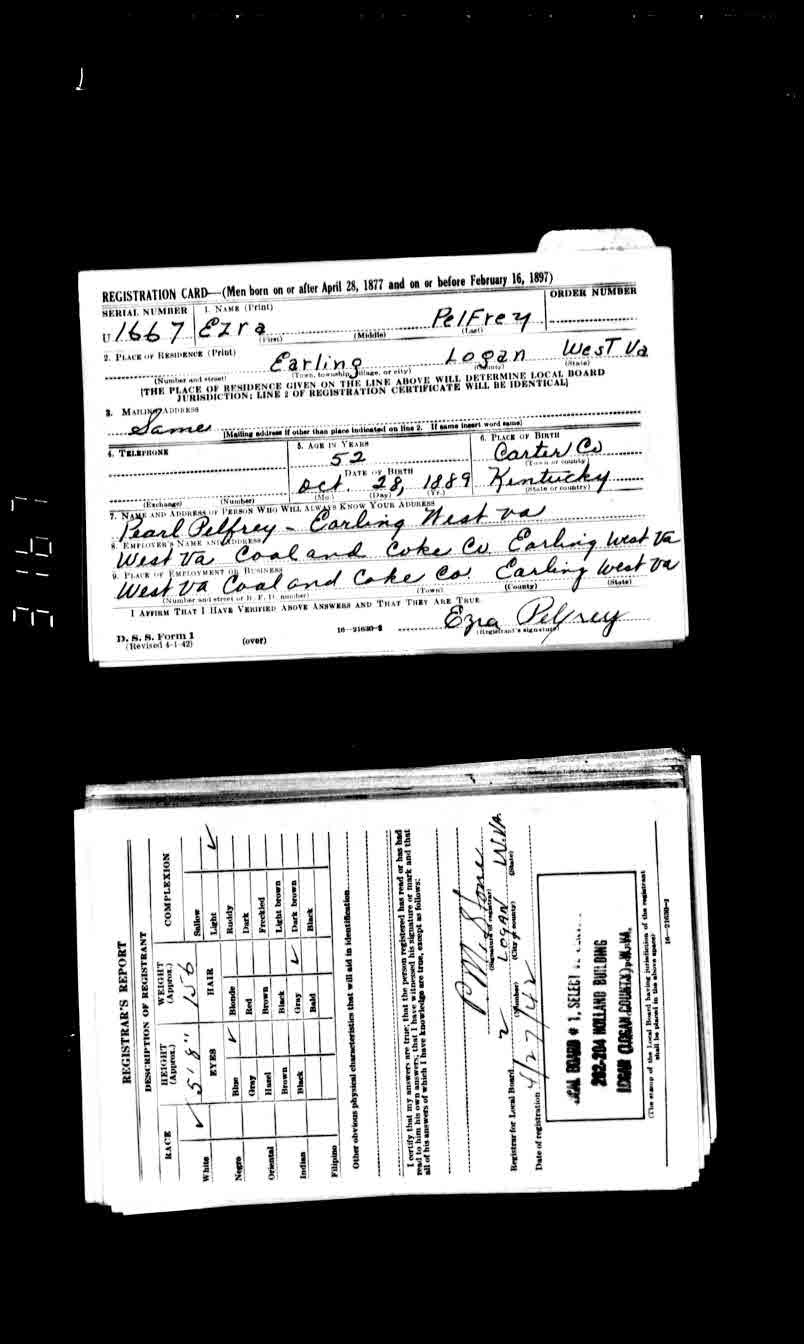 REGISTRATION CARD—(Men born on or after April 28, 1877 and on or before February 16, 1897)
SERIAL NUMBER 1. NAME (Print) ORDER NUMBER
U 1667 Ezra PelFrey
(First) (Middle) (Last)
2. PLACE OF RESIDENCE (Print)
Earling Logan West Va
(Number and street) (Town, township, village, or city) (County) (State)
[THE PLACE OF RESIDENCE GIVEN ON THE LINE ABOVE WILL DETERMINE LOCAL BOARD
JURISDICTION; LINE 2 OF REGISTRATION CERTIFICATE WILL BE IDENTICAL]
3. MAILING ADDRESS
Same
[Mailing address if other than place indicated on line 2. If same insert word same]
4. TELEPHONE 5. AGE IN YEARS 6. PLACE OF BIRTH
52 Carter Co
(Town or county)
DATE OF BIRTH
Oct. 28, 1889 Kentucky
(Exchange) (Number) (Mo.) (Day) (Yr.) (State or country)
7. NAME AND ADDRESS OF PERSON WHO WILL ALWAYS KNOW YOUR ADDRESS
Pearl Pelfrey - Earling West va
8. EMPLOYER'S NAME AND ADDRESS
West Va Coal and Coke Co. Earling West Va
9. PLACE OF EMPLOYMENT OR BUSINESS
West va Coal and Coke Co. Earling West va
(Number and street or R. F. D. number) (Town) (County) (State)
I AFFIRM THAT I HAVE VERIFIED ABOVE ANSWERS AND THAT THEY ARE TRUE.
Ezra Pelfrey
D. S. S. Form 1 16—21630-2 (Registrant's signature)
(Revised 4-1-42) (over)
3167
REGISTRAR'S REPORT
DESCRIPTION OF REGISTRANT
RACE HEIGHT (Approx.) WEIGHT (Approx.) COMPLEXION
5'8" 156
White EYES HAIR Sallow
Light
Negro Blue Blonde Ruddy
Gray Red Dark
Oriental Hazel Brown Freckled
Brown Black Light brown
Indian Black Gray Dark brown
Bald Black
Filipino
Other obvious physical characteristics that will aid in identification
I certify that my answers are true; that the person registered has read or has had
read to him his own answers; that I have witnessed his signature or mark and that
all of his answers of which I have knowledge are true, except as follows:
P. M. Stone
(Signature of registrar)
Registrar for Local Board 2 LOGAN W.VA.
(Number) (City or county) (State)
Date of registration 4/27/42
LOCAL BOARD # 1, SELECT
202-204 HOLLAND BUILDING
LOGAN (LOGAN COUNTY), W. VA.
(The stamp of the Local Board having jurisdiction of the registrant
shall be placed in the above space)
16—21630-2